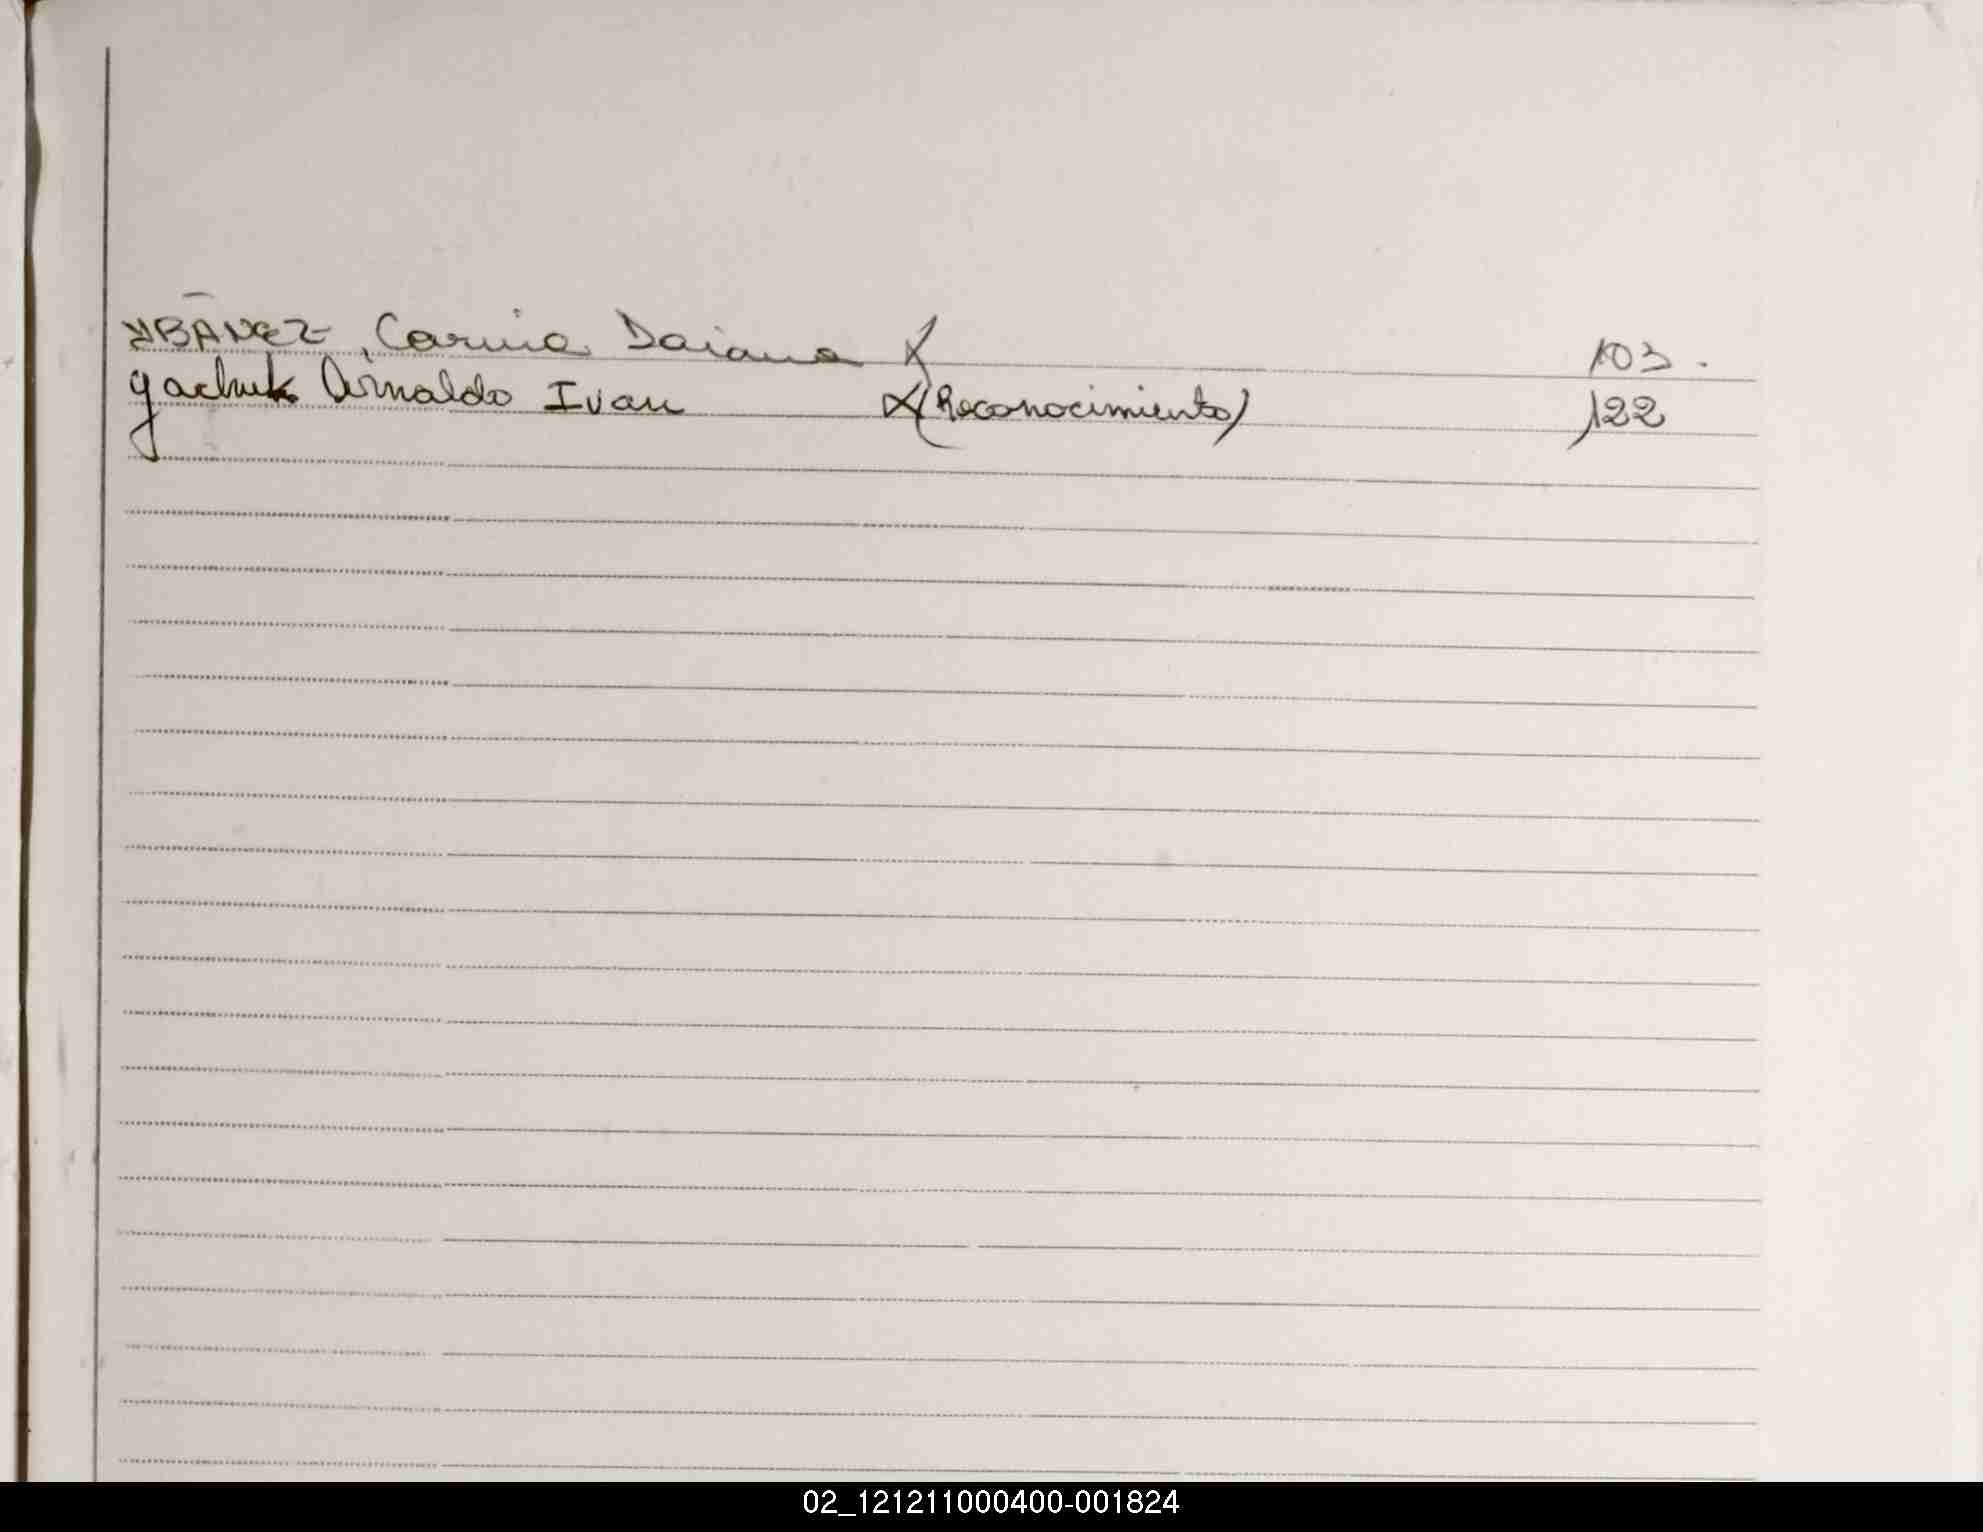 YBAÑEZ, Carina Daiana X 103.
Yachuk Arnaldo Ivan X (Reconocimiento) 122
02_121211000400-001824